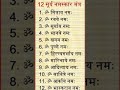 12 सुर्य नमस्कार मंत्र
1. ॐ मित्राय नमः
2. ॐ रवये नमः
3. ॐ सूर्याय नमः
4. ॐ भानवे नमः
5. ॐ खगाय नमः
6. ॐ नमः
7. ॐ नमः
8. ॐ नमः
9. ॐ आदित्याय नमः
10. ॐ सावित्रे नमः
11. ॐ अर्काय नमः
12. ॐ भास्कराय नमः